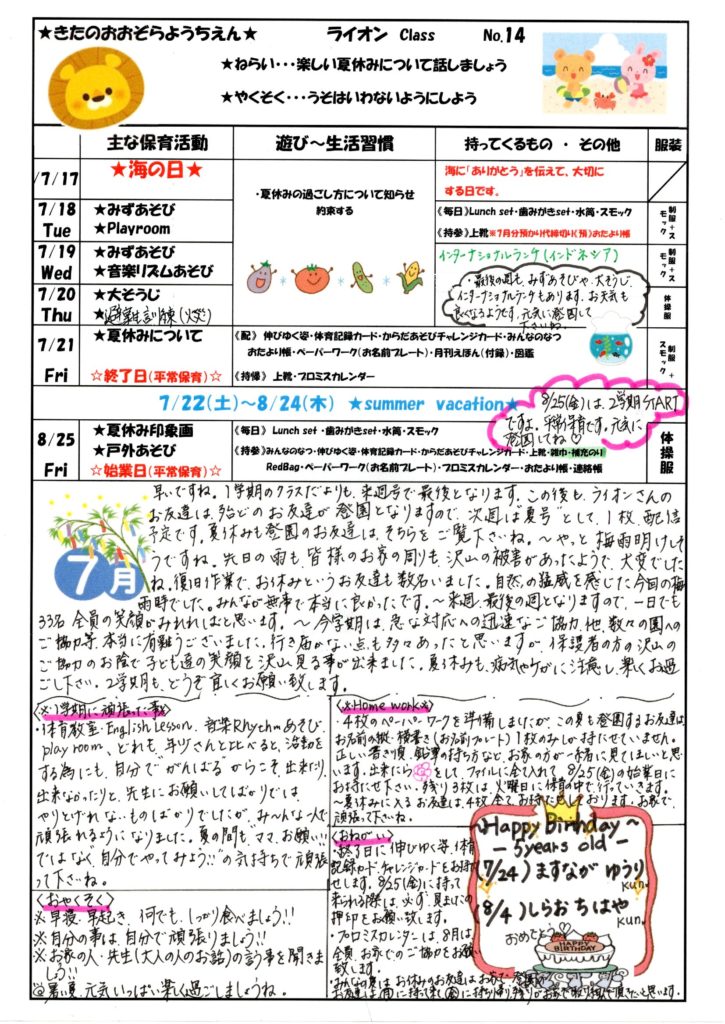 ★きたのおおぞらようちえん★　ライオン Class　No.14
★ねらい・・・楽しい夏休みについて話しましょう
★やくそく・・・うそはいわないようにしよう
主な保育活動　遊び～生活習慣　持ってくるもの ・ その他　服装
/7/17　★海の日★　海に「ありがとう」を伝えて、大切に
する日です。
・夏休みの過ごし方について知らせ
約束する
7/18　★みずあそび　《毎日》Lunch set・歯みがきset・水筒・スモック　制服+スモック
Tue　★Playroom　《持参》上靴※7月分預かり代締切り(預)おたより帳
7/19　★みずあそび　インターナショナルランチ(インドネシア)　制服+スモック
Wed　★音楽リズムあそび
7/20　★大そうじ　体操服
Thu　★避難訓練(火災)
・最後の週も、みずあそびや、大そうじ、
インターナショナルランチもあります。お天気も
良くなるようです。元気に登園して
下さいね。
7/21　★夏休みについて　《配》 伸びゆく姿・体育記録カード・からだあそびチャレンジカード・みんなのなつ　制服+スモック
おたより帳・ペーパーワーク(お名前プレート)・月刊えほん(付録)・図鑑
Fri　☆終了日(平常保育)☆　《持帰》 上靴・プロミスカレンダー
7/22(土)～8/24(木)　★summer vacation★
8/25(金)は、2学期START
ですよ。平常保育です。元気に
登園してね♡
8/25　★夏休み印象画　《毎日》 Lunch set・歯みがきset・水筒・スモック　体操服
★戸外あそび　《持参》みんなのなつ・伸びゆく姿・体育記録カード・からだあそびチャレンジカード・上靴・雑巾・補充のり
Fri　☆始業日(平常保育)☆　RedBag・ペーパーワーク(お名前プレート)・プロミスカレンダー・おたより帳・連絡帳
7月
早いですね。1学期のクラスだよりも、来週号で最後となります。この後も、ライオンさんの
お友達は、殆どのお友達が登園となりますので、次週は"夏号"として、1枚、配信
予定です。夏休みも登園のお友達は、そちらをご覧下さいね。～やっと梅雨明けして
うですね。先日の雨も、皆様のお家の周りも、沢山の被害があったようで、大変でした
ね。復旧作業で、お休みというお友達も数名いました。自然の猛威を感じた今回の梅
雨時でした。みんなが無事で本当に良かったです。～来週、最後の週となりますので、一日でも
33名全員の笑顔がみれればと思います。～今学期は、急な対応への迅速なご協力、他、数々の園への
ご協力等、本当に有難うございました。行き届かない点も多々あったと思いますが、保護者の方の沢山の
ご協力のお陰で子ども達の笑顔を沢山見る事が出来ました。夏休みも、病気やケガに注意し、楽しくお過
ごし下さい。2学期も、どうぞ宜しくお願い致します。
〈※1学期に頑張った事※〉
・体育教室・English Lesson、音楽Rhythmあそび
play room、どれも、年少さんと比べると、活動を
する為にも、自分で"がんばる"からこそ、出来たり、
出来なかったりと、先生にお願いしてばかりでは
やりとげれないものばかりでしたが、み～んな一人で
頑張れるようになりました。夏の間も、ママ、お願い!!
ではなく、自分でやってみよう!!の気持ちで頑張
って下さいね。
〈おやくそく〉
※早寝、早起き、何でも、しっかり食べましょう!!
※自分の事は、自分で頑張りましょう!!
※お家の人・先生(大人の人のお話)の言う事を聞きま
しょう!!
◎暑い夏、元気いっぱい楽しく過ごしましょうね。
〈※Home work※〉
・4枚のペーパーワークを準備しましたが、この夏も登園するお友達は
お名前の縦・横書き(お名前プレート)1枚のみしか持たせていません。
正しい書き順、鉛筆の持ち方など、お家の方が一緒に見てほしいと思
います。出来たらをして、ファイルに全て入れて 8/25(金)の始業日に
お持たせ下さい。残り3枚は、火曜日に休育の中で行っていきます。
～夏休みに入るお友達は、4枚全てお持たせしております。お家で
頑張って下さいね。
〈おねがい〉
・終了日に伸びゆく姿、体育
記録カード、チャレンジカードをお持たせ
せします。8/25(金)に持って
来られる際は、必ず、見ましたの
押印をお願い致します。
・プロミスカレンダーは、8月は
全員、お家でのご協力をお願い
致します。
・みんなの夏は、お休みのお友達は
Happy Birthday～
－5years old－
(7/24)ますなが ゆうり
kun.
(8/4)しらおちはや
kun.
おめでとう
HAPPY BIRTHDAY